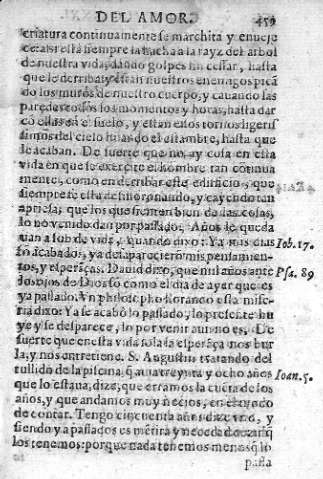 DEL AMOR. 459
criatura continuamente se marchita y
està la siempre la hacha a la rayz del arbol
de nuestra vida, dando golpes sin cessar, hasta
que le derriba, y estan nuestros enemigos picã
do los muros de nuestro cuerpo, y cauando las
paredes todos los momentos y horas, hasta dar
cõ ellas en el suelo, y estan essos tornos ligeris
simos del cielo hilando el estambre, hasta que
le acaban. De suerte que no ay cosa en esta
vida en que se exercite el hombre tan continua
mente, como en derribar este edificio, que
siempre se esta desmoronando, y cayendo tan
apriesa, que los que sienten bien de las cosas,
lo no venido dan por passado. Años le queda
uan a Iob de vida, quando dixo: Ya mis dias Iob. 17.
sõ acabados, ya desaparecierõ mis pensamien-
tos, y esperãças. Dauid dixo, que mil años ante Psa. 89
los ojos de Dios sõ como el dia de ayer que es
ya passado. Vn philosopho llorando esta mise-
ria dixo: Ya se acabò lo passado, lo presente hu
ye y se desparece, lo por venir aun no es. De
suerte que en esta vida sola la esperãça nos bur
la, y nos entretiene. S. Augustin tratando del
tullido de la piscina, q̃ auia treynta y ocho años Ioan. 5.
que lo estaua, dize, que erramos la cuẽta de los
años, y que andamos muy necios, en
de contar. Tengo cincuenta años dize vno, y
siendo ya passados es mẽtira y necedad dezir q̃
los tenemos: porque nada tenemos menos q̃ lo
passa